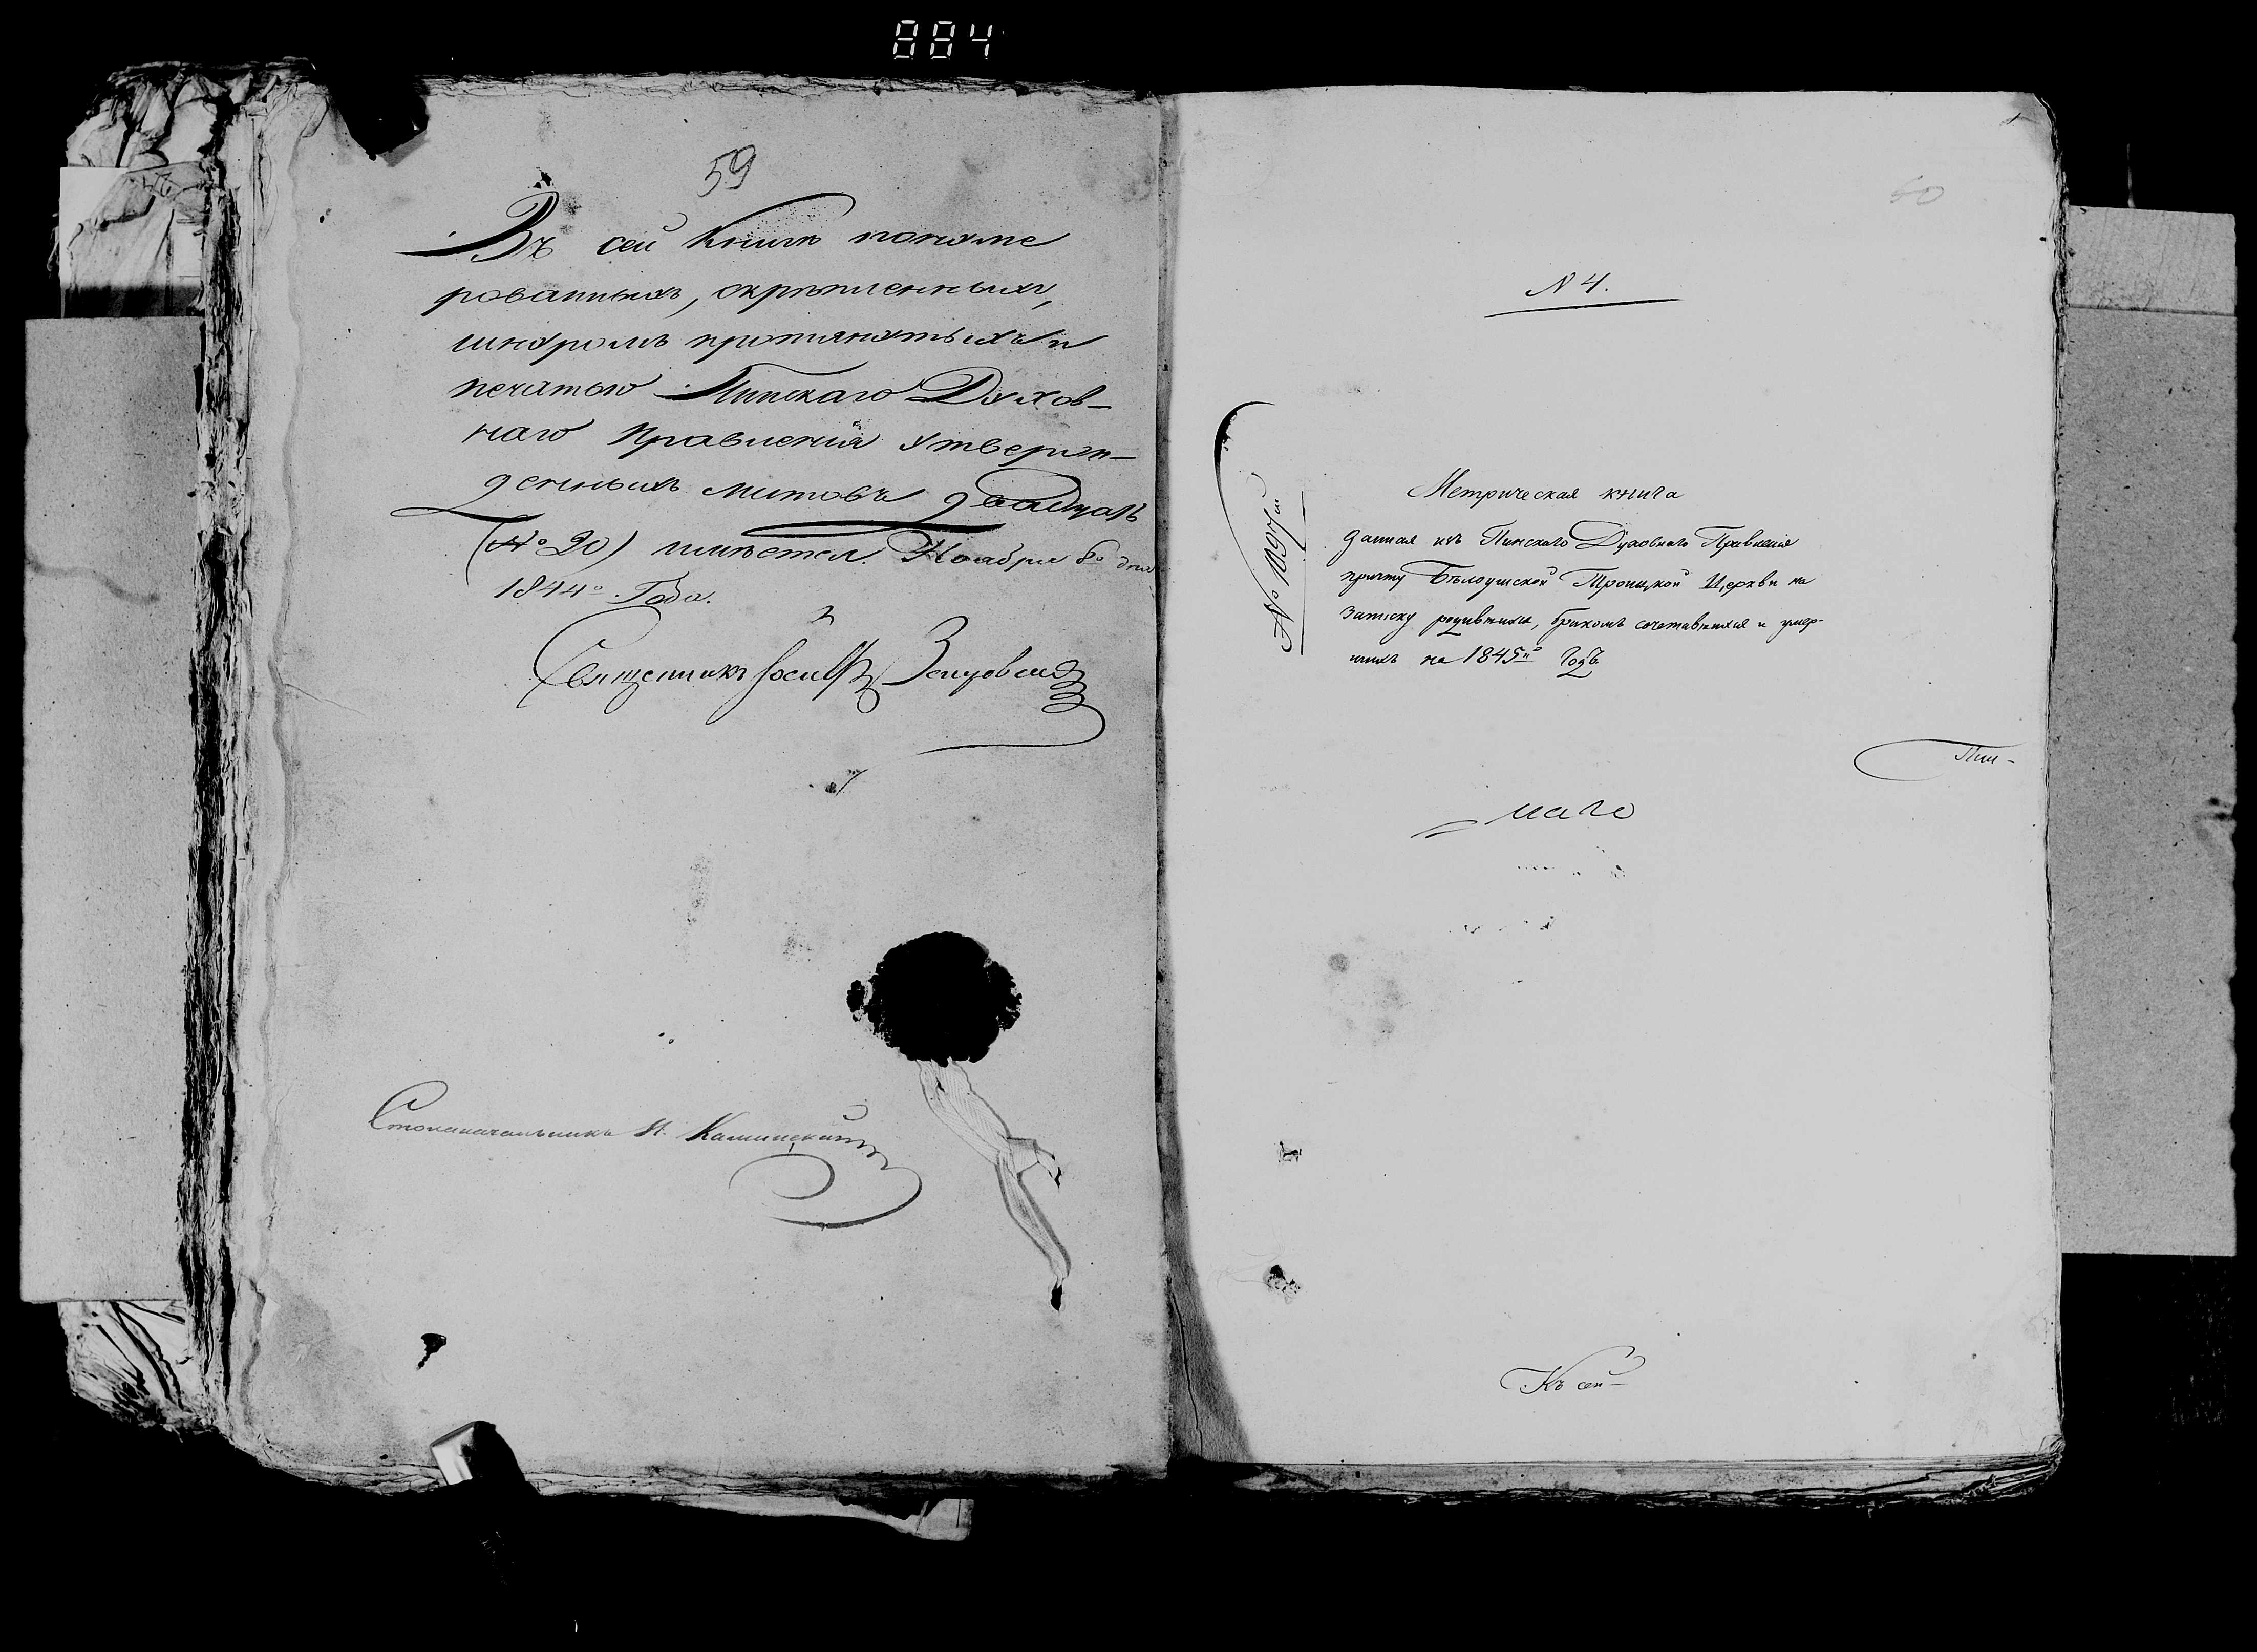 884
59
Въ сей книгѣ понуме
рованныхъ, скрѣпленныхъ,
шнуромъ протянутыхъ и
печатью Пинскаго Духов-
наго Правленія утверж-
денныхъ листовъ двадцать
(№ 20) имѣется. Ноября 8º дня
1844º Года.
Священникъ Іосифъ
Столоначальникъ Каминскій
60
N 4.
№ 1097й
Метрическая книга
данная изъ Пинскаго Духовнаго Правленія
причту Бѣлоушской Троицкой Церкви на
записку родившихся, бракомъ сочетавшихся и умер-
шихъ на 1845й Годъ
Пин-
Къ сей-